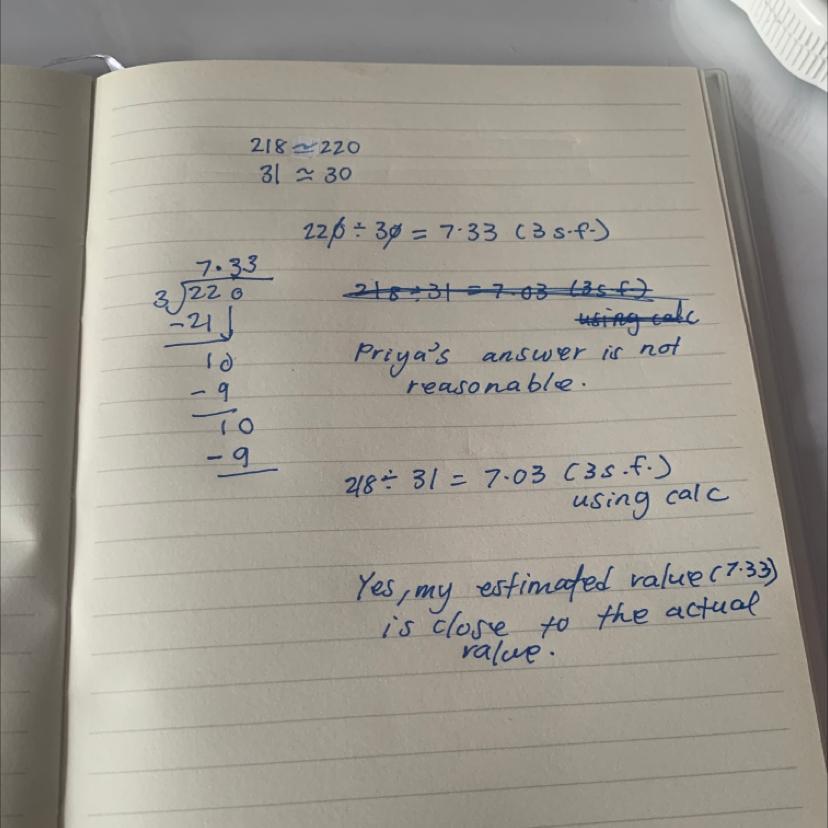 218 ≈ 220
31 ≈ 30
220 ÷ 30 = 7.33 (3 s.f.)
7.33
3)220
-21
10
-9
10
-9
218 ÷ 31 = 7.03 (3s.f)
using calc
Priya's answer is not
reasonable.
218 ÷ 31 = 7.03 (3s.f.)
using calc
Yes, my estimated value (7.33)
is close to the actual
value.